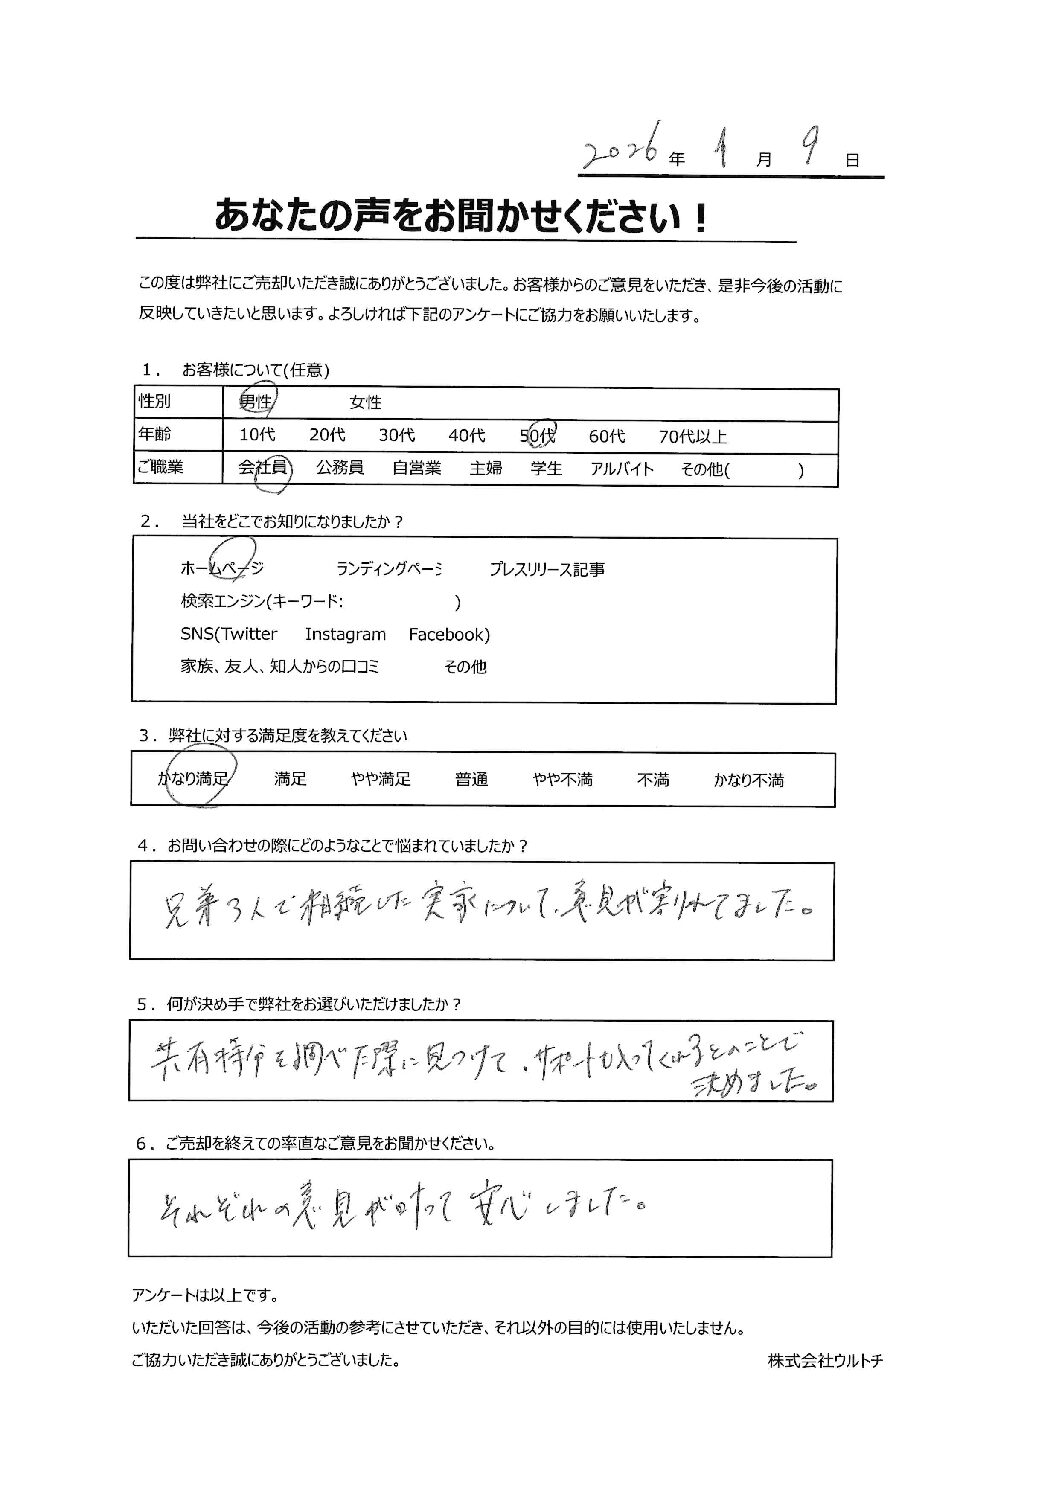 2026年 1月 9日
あなたの声をお聞かせください！
この度は弊社にご売却いただき誠にありがとうございました。お客様からのご意見をいただき、是非今後の活動に
反映していきたいと思います。よろしければ下記のアンケートにご協力をお願いいたします。
1． お客様について(任意)
性別 男性 女性
年齢 10代 20代 30代 40代 50代 60代 70代以上
ご職業 会社員 公務員 自営業 主婦 学生 アルバイト その他( )
2． 当社をどこでお知りになりましたか？
ホームページ ランディングページ プレスリリース記事
検索エンジン(キーワード: )
SNS(Twitter Instagram Facebook)
家族、友人、知人からの口コミ その他
3．弊社に対する満足度を教えてください
かなり満足 満足 やや満足 普通 やや不満 不満 かなり不満
4．お問い合わせの際にどのようなことで悩まれていましたか？
兄弟3人で相続した実家について、意見が割れてました。
5．何が決め手で弊社をお選びいただけましたか？
共有持分を調べた際に見つけて、サポートも入ってくれるとのことで
決めました。
6．ご売却を終えての率直なご意見をお聞かせください。
それぞれの意見が叶って安心しました。
アンケートは以上です。
いただいた回答は、今後の活動の参考にさせていただき、それ以外の目的には使用いたしません。
ご協力いただき誠にありがとうございました。 株式会社ウルトチ